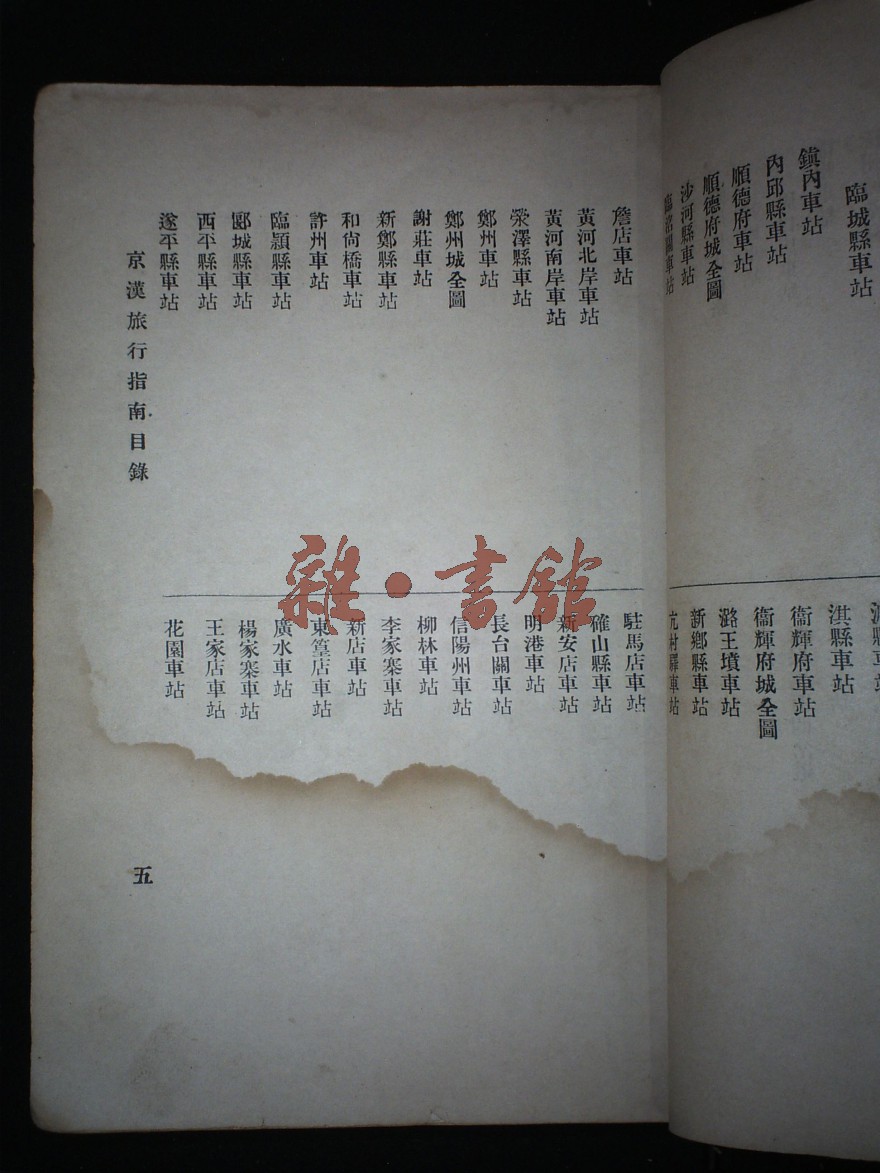 臨城縣車站
鎭內車站
內邱縣車站
順德府車站
順德府城全圖
沙河縣車站
臨洺關車站
淇縣車站
衞輝府車站
衞輝府城全圖
潞王墳車站
新鄕縣車站
亢村驛車站
詹店車站
黃河北岸車站
黃河南岸車站
滎澤縣車站
鄭州車站
鄭州城全圖
謝莊車站
新鄭縣車站
和尙橋車站
許州車站
臨潁縣車站
郾城縣車站
西平縣車站
遂平縣車站
駐馬店車站
確山縣車站
新安店車站
明港車站
長台關車站
信陽州車站
柳林車站
李家寨車站
新店車站
東篁店車站
廣水車站
楊家寨車站
王家店車站
花園車站
京漢旅行指南目錄
五
雜·書館